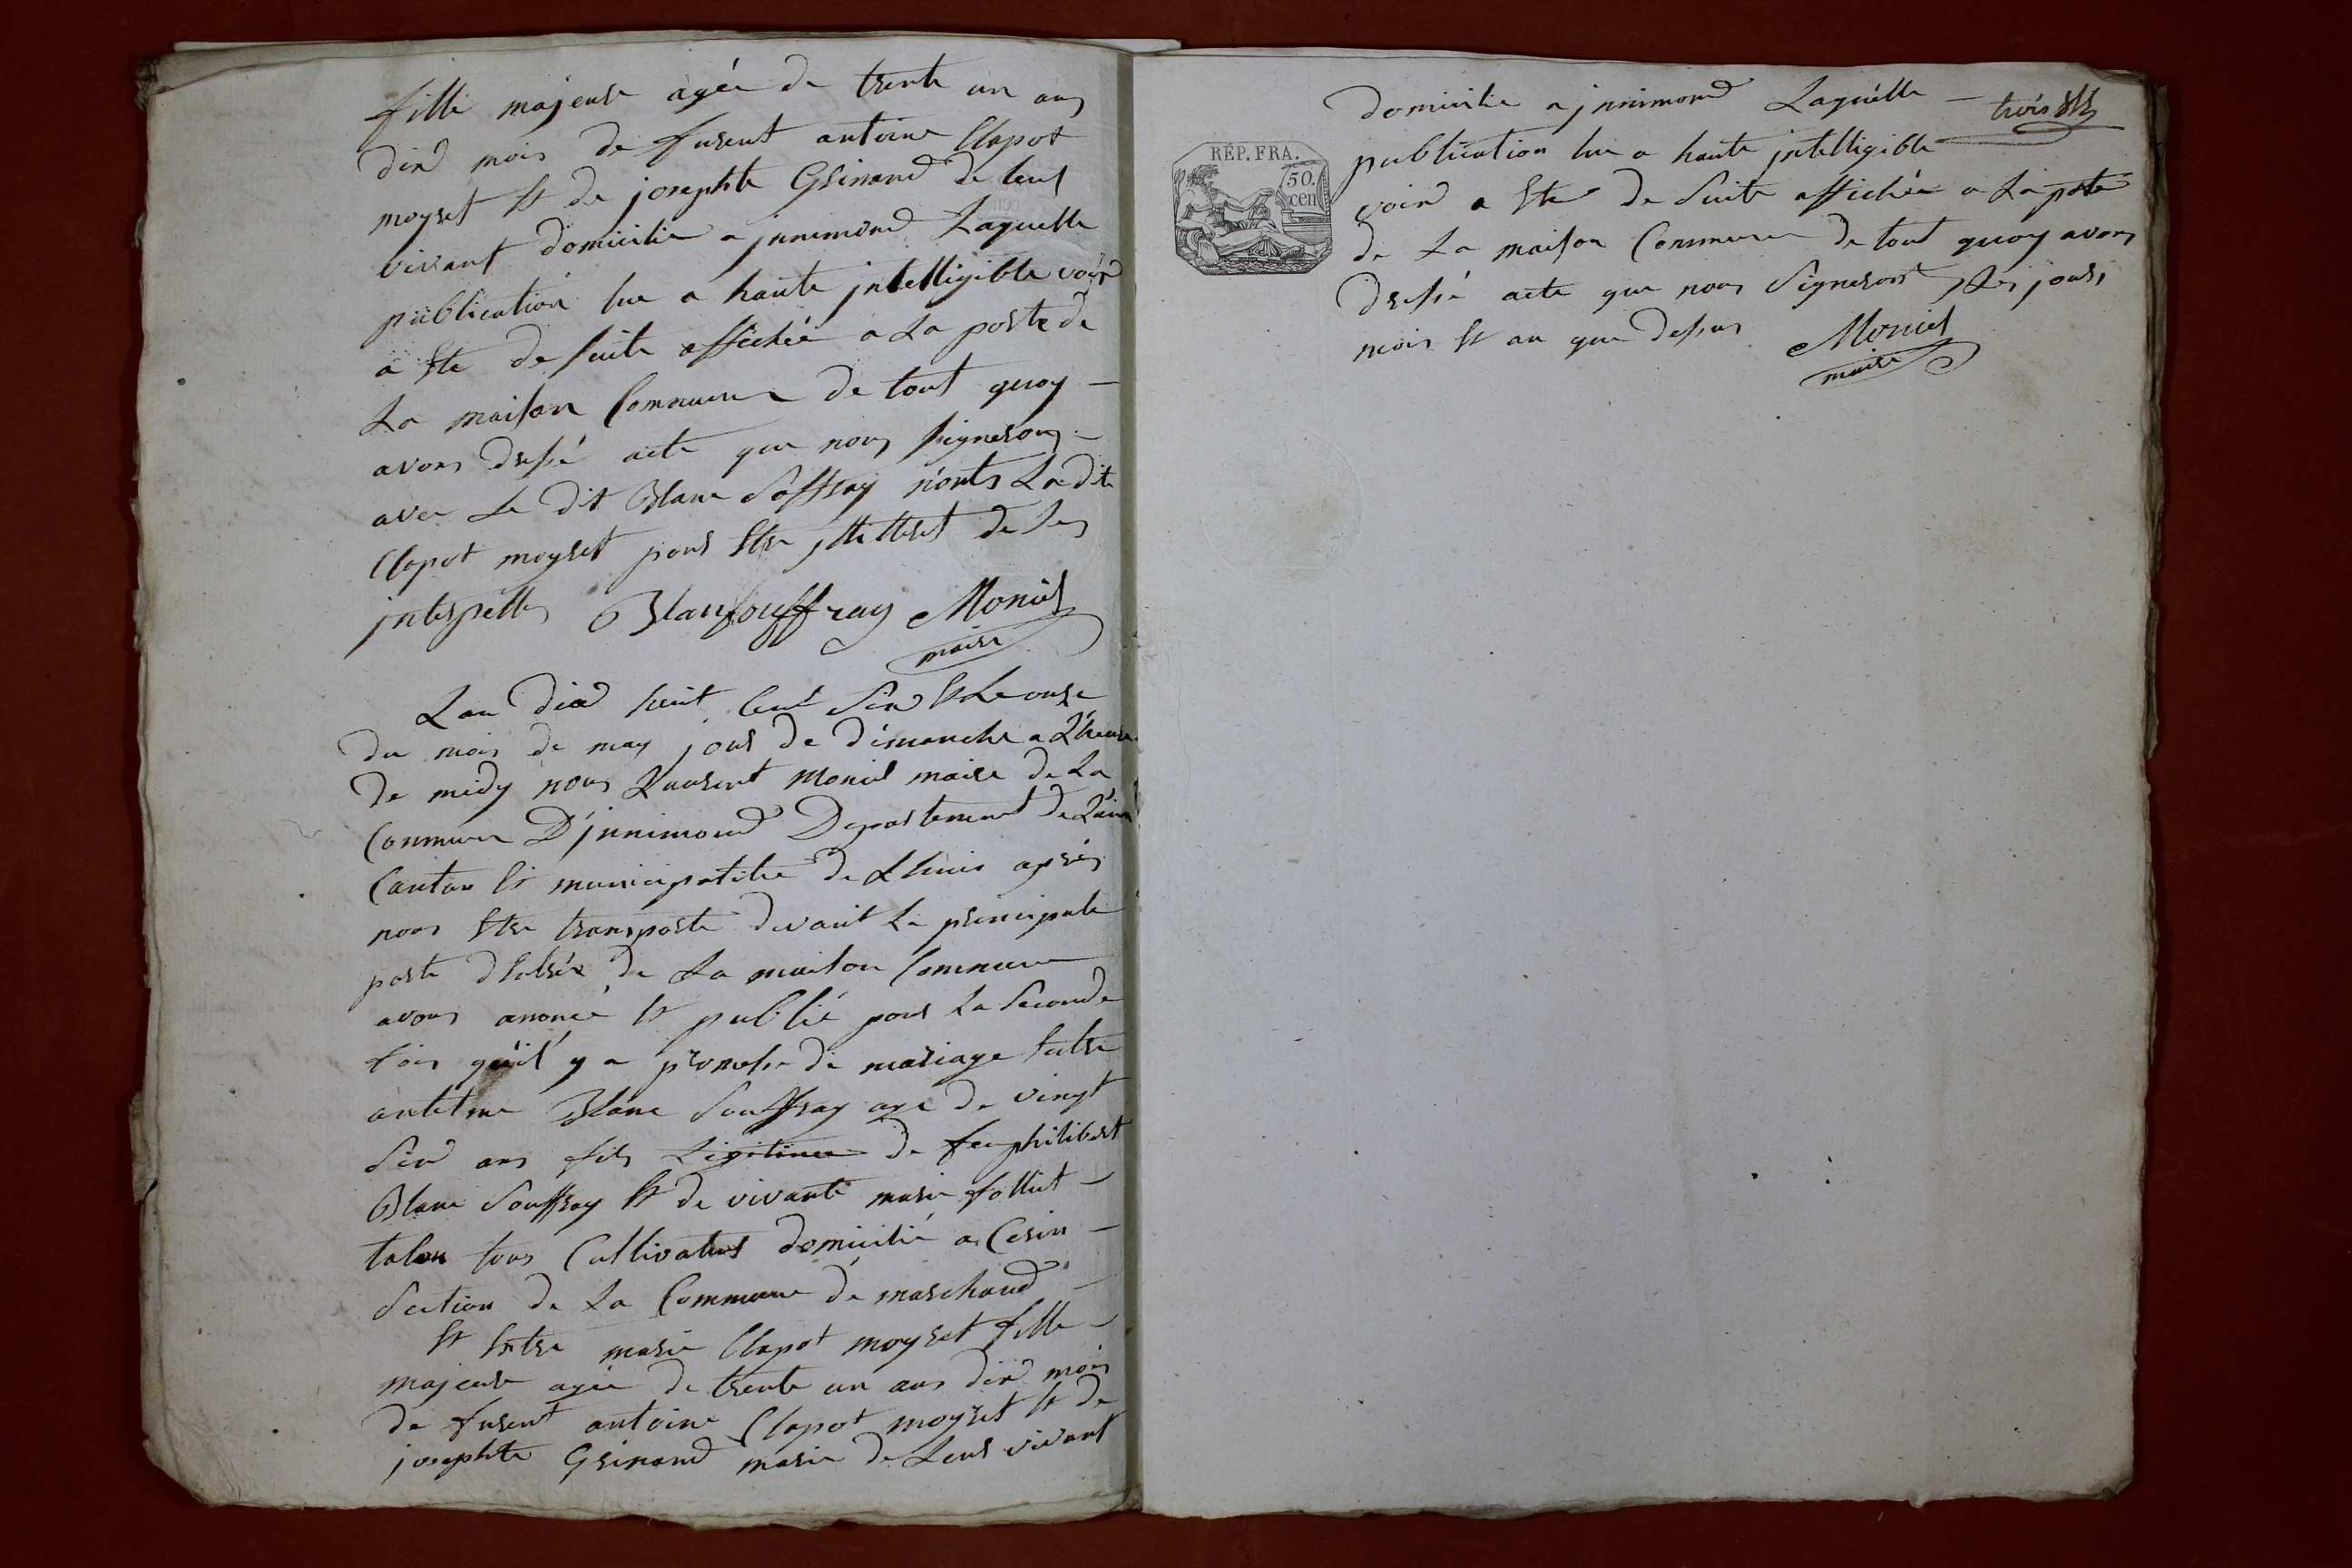 fille majeure agée de trente un ans
dix mois de furent antoine Clapot
moyret et de josephte Grinand de leur
vivant domicilié a jnnimond Laquelle
publication lue a haute jntelligible voix
a Ete de suite affichée a La porte de
La maison Commune de tout quoy —
avons dressé acte que nous signerons —
avec Le dit Blanc Soffray nonts Ladite
Clapot moyret pour Etre jllitteret de Ses
jnterpelles Blansouffray Monier
maire
Lan dix huit Cent Six Et Le onze
du mois de may jour de dimanche a L'heure
de midy nous Laurent Monier maire de La
Commune D'jnnimond Departement de L'ain
Canton Et municipalitée de Lhuis après
nous Etre transporté devant La principale
porte d'Entrée de La maison Commune
avons anoncé Et publié pour La Seconde
fois qu'il y a promesse de mariage Entre
antelme Blanc Souffray age de vingt
Six ans fils Legitime de feu philibert
Blanc Souffray Et de vivante marie folliet —
talon tous Cultivateurs domicilié a Cerin —
Section de La Commune de marchand —
Et Entre marie Clapot moyret fille —
majeure agée de trente un ans dix mois
de furent antoine Clapot moyret Et de
josephte Grinand marie de Leur vivant
domicilie a jnnimond Laquelle — trois
RÉP. FRA.
50.
cen
publication lue a haute jntelligible
voix a Ete de Suite affichée a La porte
de La maison Commune de tout quoy avons
dressé acte que nous Signerons Les jours
mois Et an que dessus Monier
maire